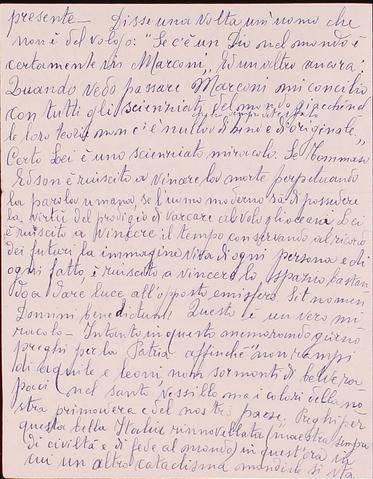 presente - Disse una volta un uomo che
non è del volgo: "Se c'è un Dio nel mondo è
certamente in Marconi", Ed un altro ancora:
"Quando vedo passare Marconi mi concilio
con tutti gli scienziati del mondo giacché nel
le loro teorie non ci è nulla di buono e d'originale."
Certo Lei è uno scienziato miracolo. Se Tommaso
Edison è riuscito a vincere la morte perpetuando
la parola umana, se l'uomo moderno sa di possedere
la virtù del prodigio di varcare a volo gli oceani Lei
è riuscito a vincere il tempo conservando al ricordo
dei futuri la immagine viva di ogni persona e di
ogni fatto, è riuscito a vincere lo spazio, bastan
do a dare luce all'opposto emisfero. Sit nomen
Domini benedictum! Questo è un vero mi
racolo - Intanto in questo memorando giorno
preghi per la Patria affinché "non rampi
di aquile e leoni, non sormonti di belve ra
paci nel santo vessillo ma i colori della no
stra primavera e del nostro paese. Preghi per
questa bella Italia rinnovellata (maestra sempre
di civiltà e di fede al mondo) in quest'ora in
cui un altro cataclisma mondiale si sta